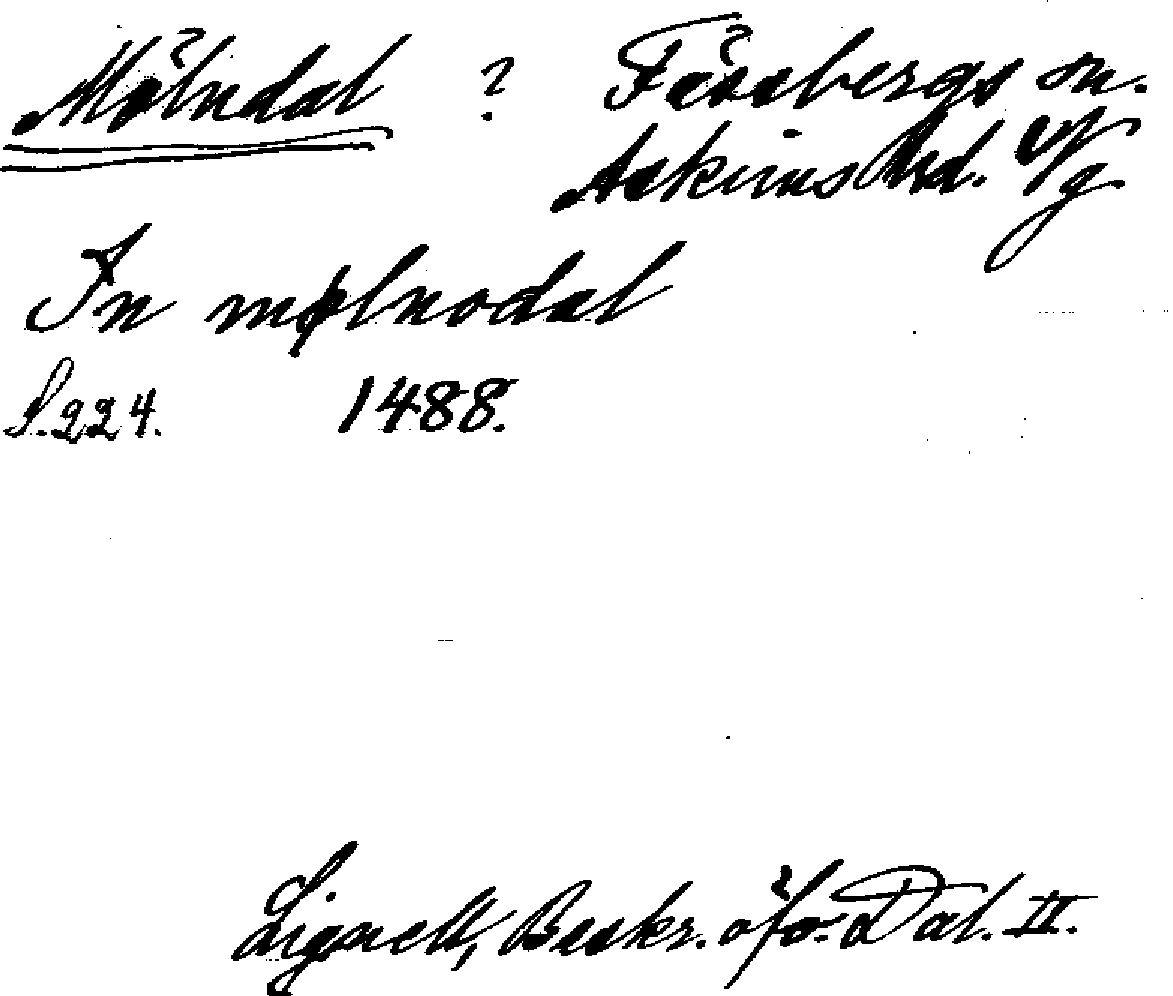 Mölndal ? Fässbergs sn.
Askims hd. Vg
In mølnodal
S. 224. 1488.
Lignell, Beskr. öfv. Dal. II.